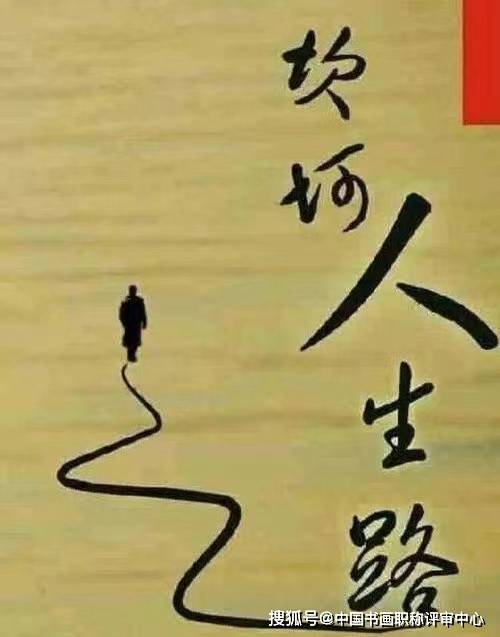 坎坷
人生路
搜狐号@中国书画职称评审中心